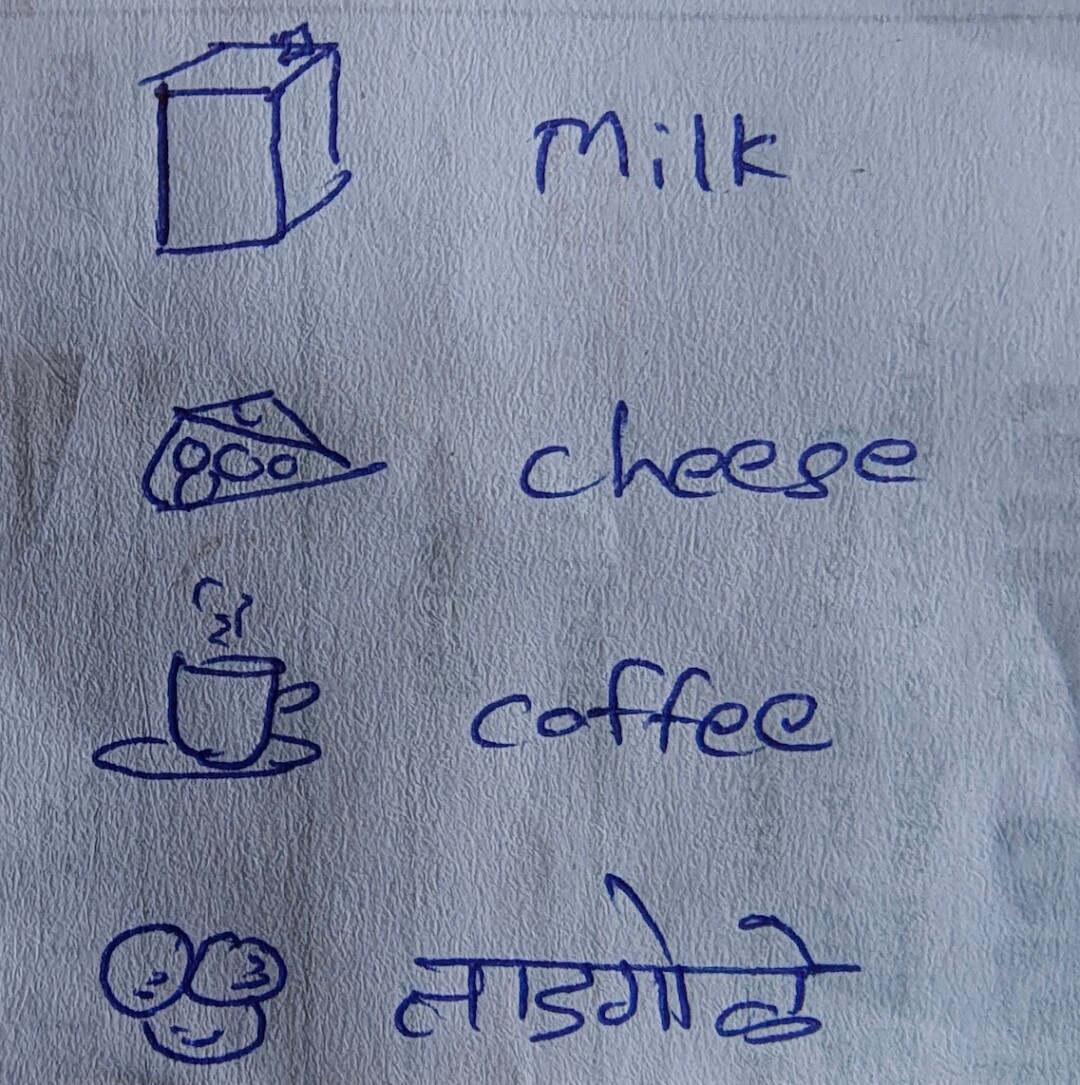 Milk
cheese
coffee
ताडगोळे